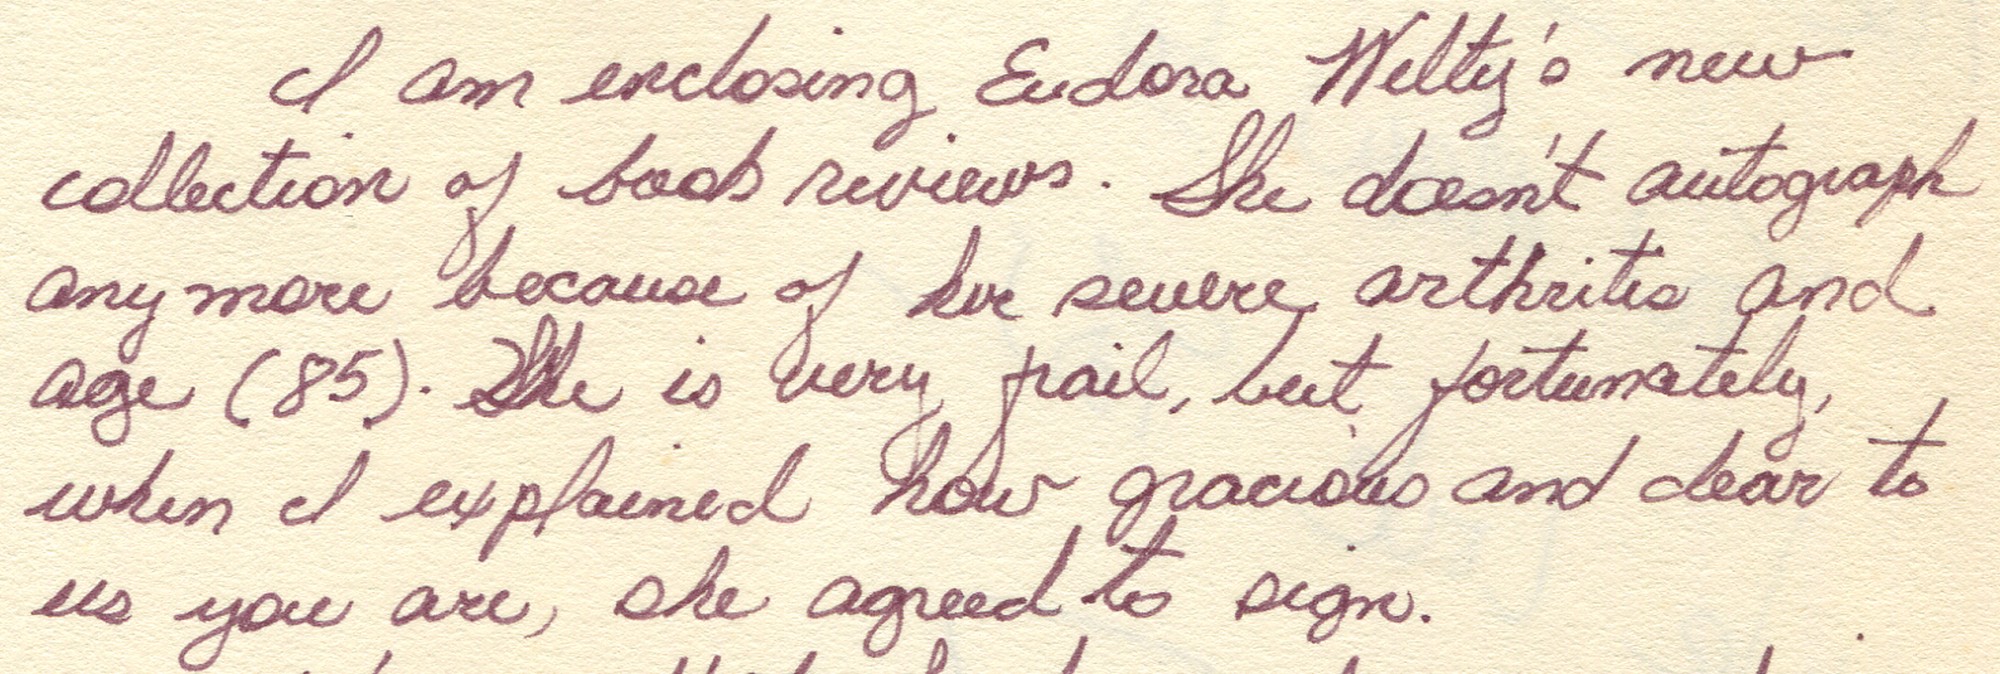 I am enclosing Eudora Welty's new
collection of book reviews. She doesn't autograph
anymore because of her severe arthritis and
age (85). She is very frail, but fortunately,
when I explained how gracious and dear to
us you are, she agreed to sign.